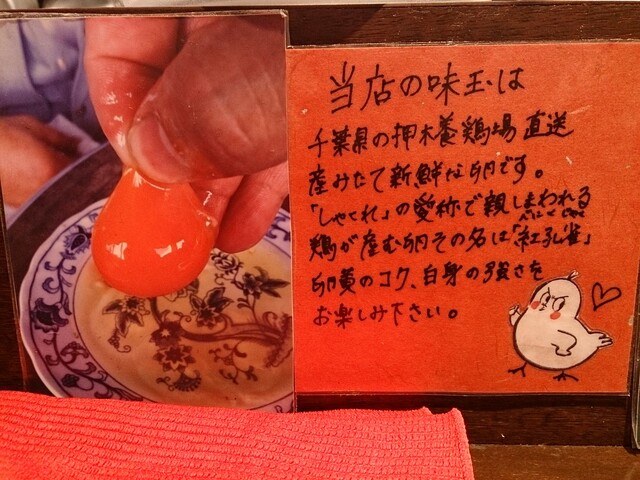 当店の味玉は
千葉県の押木養鶏場直送
産みたて新鮮な卵です。
「しゃくれ」の愛称で親しまわれる
鶏が産む卵その名は「紅孔雀」
べにくじゃく
卵黄のコク、白身の強さを
お楽しみ下さい。